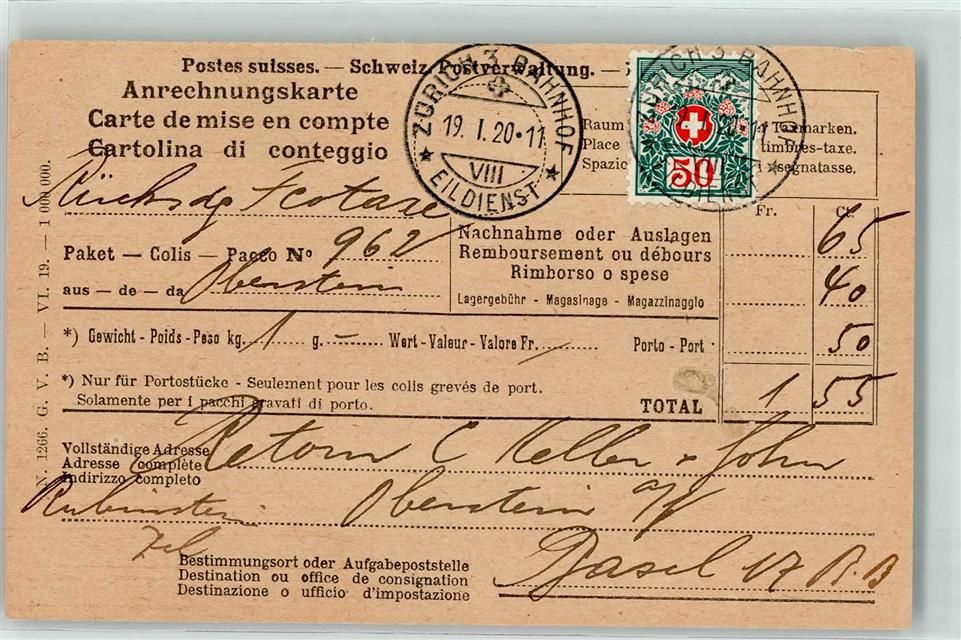 Postes suisses. — Schweiz. Postverwaltung. —
Anrechnungskarte
Carte de mise en compte
Cartolina di conteggio
ZÜRICH 3 BAHNHOF
19. I. 20·11
VIII
EILDIENST
Raum
Place
Spazio
50
Taxmarken.
timbres-taxe.
segnatasse.
N. 1266. G. V. B. — VI. 19. — 1 000 000.
Paket — Colis — Pacco Nº 962
aus — de — da Oberstein
Nachnahme oder Auslagen
Remboursement ou débours
Rimborso o spese
Lagergebühr - Magasinage - Magazzinaggio
Fr. Ct.
65
40
*) Gewicht - Poids - Peso kg. 1 g. – Wert - Valeur - Valore Fr. / Porto - Port 50
*) Nur für Portostücke - Seulement pour les colis grevés de port.
Solamente per i pacchi gravati di porto.
TOTAL 1 55
Vollständige Adresse
Adresse complète
Indirizzo completo
Retour C Keller & Sohn
Rubinstein Oberstein a/
Bestimmungsort oder Aufgabepoststelle
Destination ou office de consignation
Destinazione o ufficio d'impostazione
Basel 17 B.B